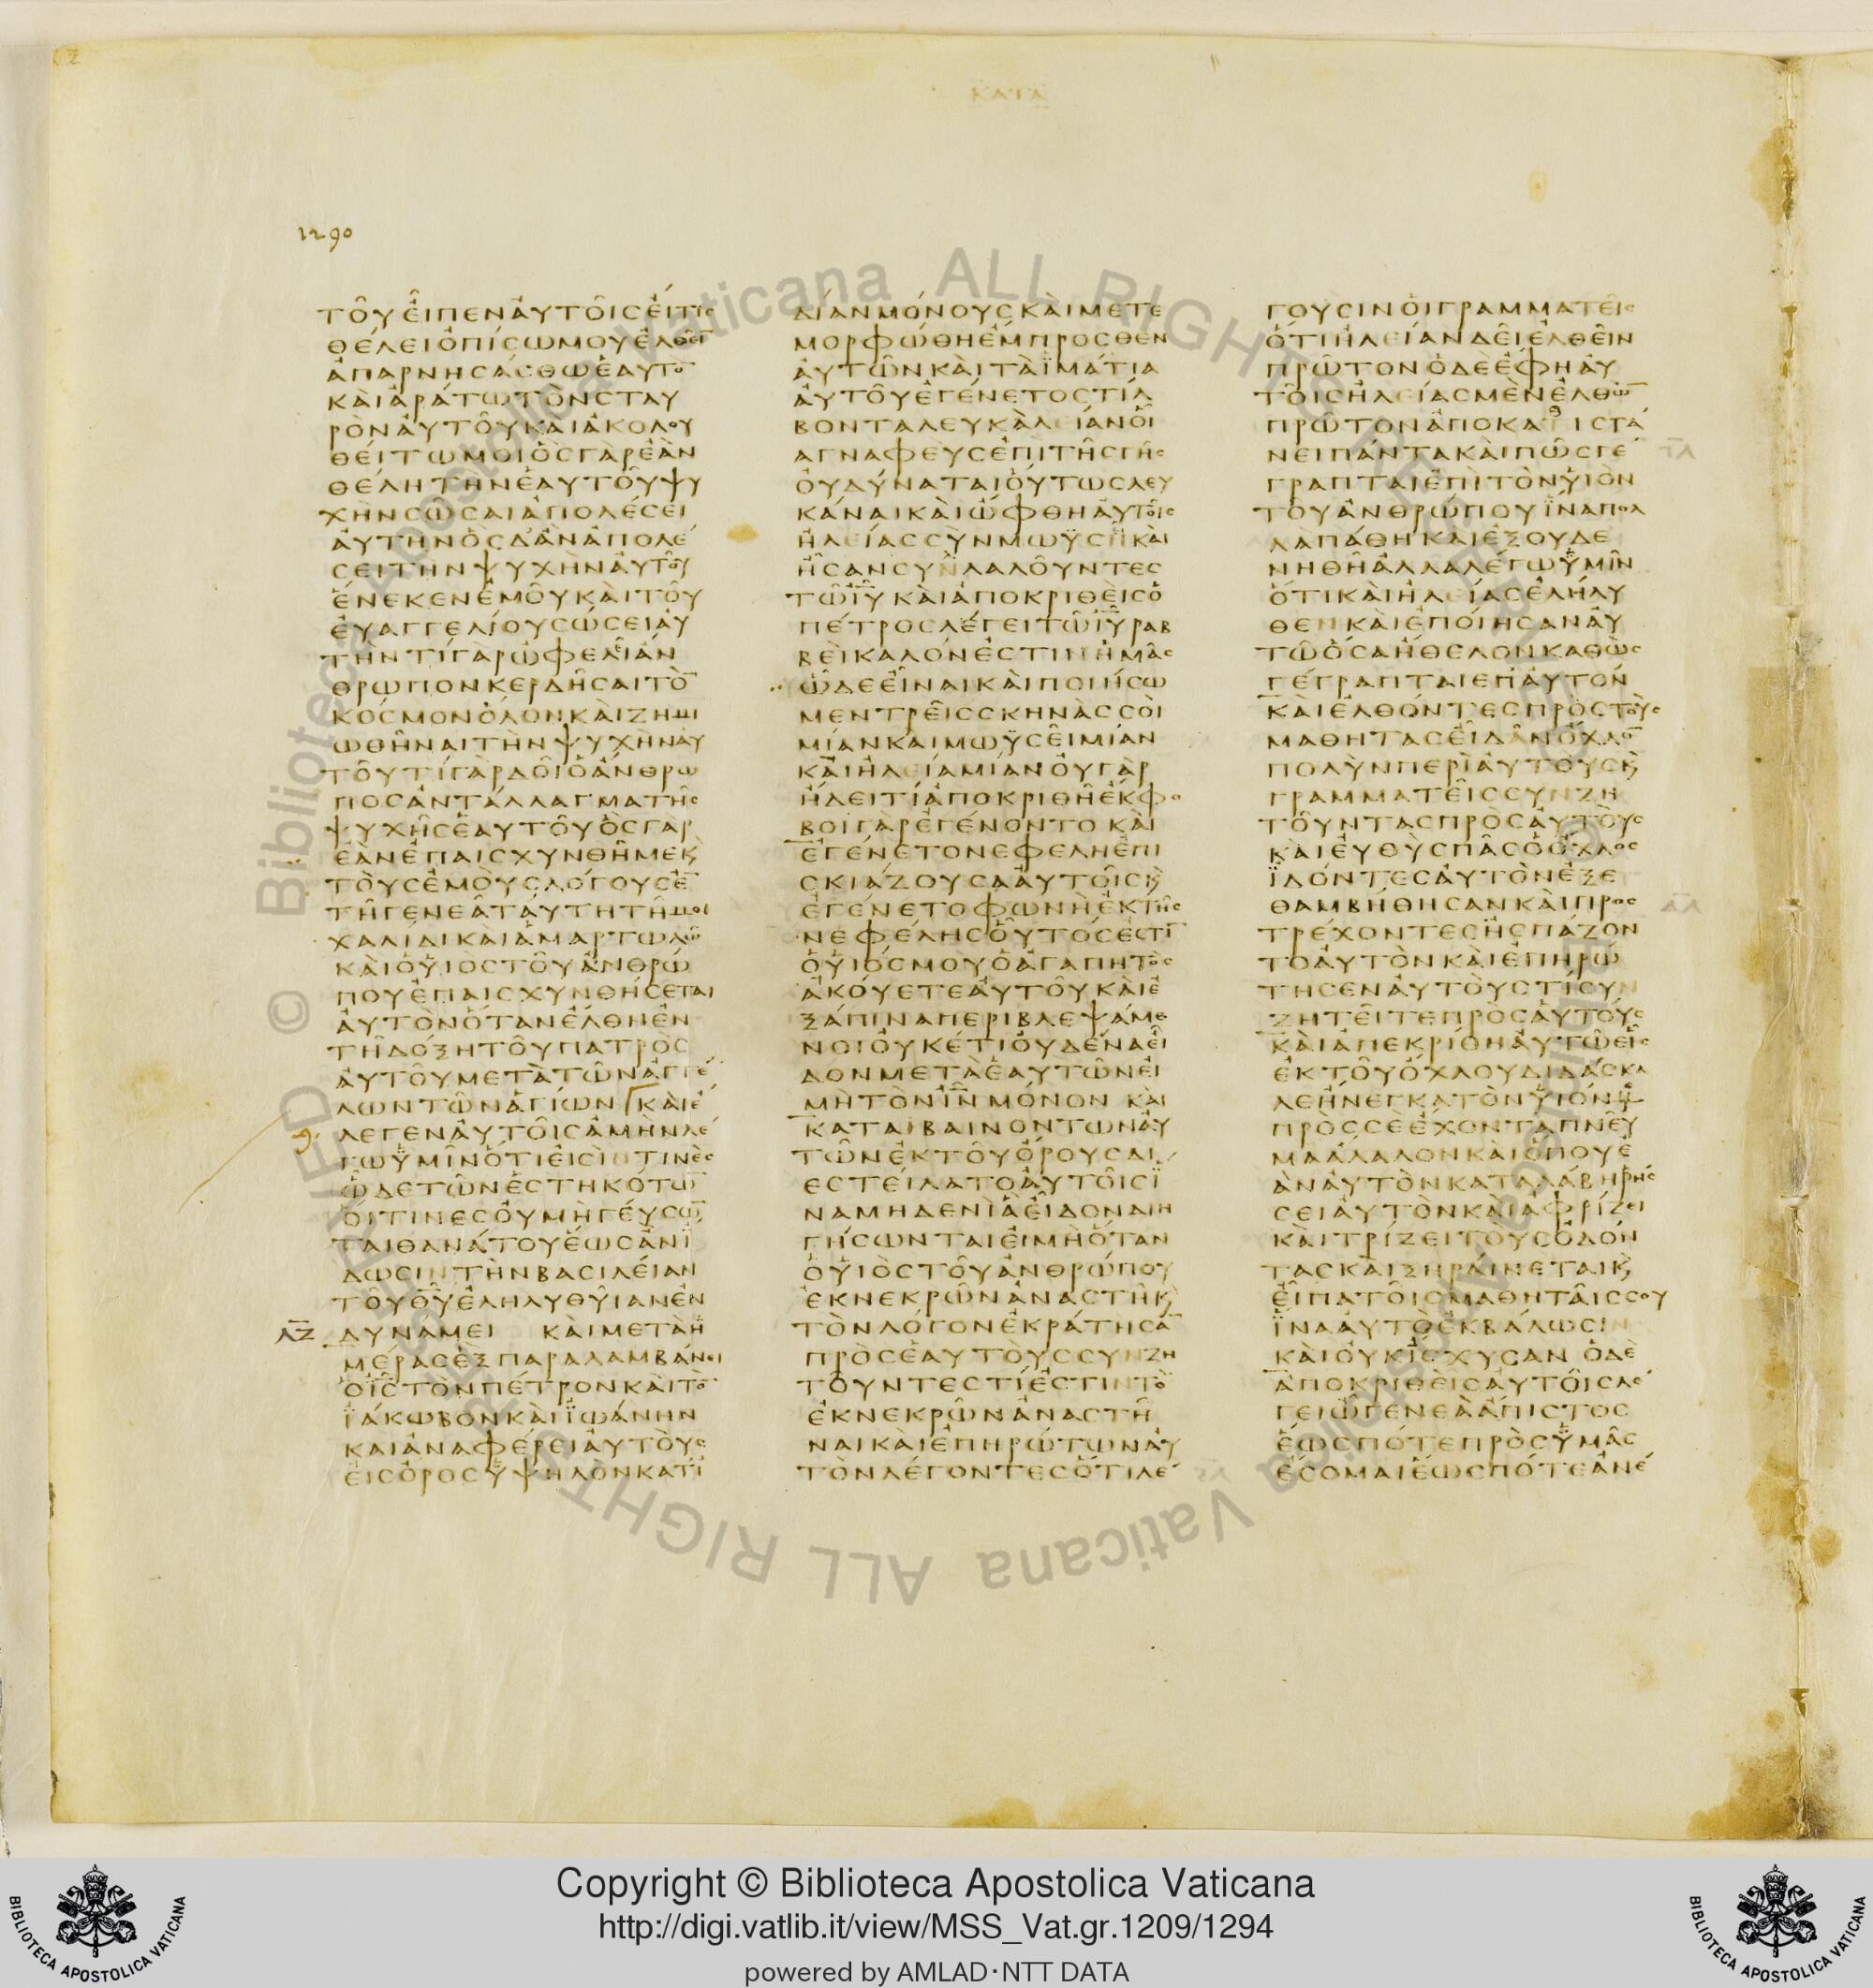 ΚΑΤΑ
1290
ΤΟΥΕΙΠΕΝΑΥΤΟΙϹΕΙΤΙϹ
ΘΕΛΕΙΟΠΙϹΩΜΟΥΕΛΘΕΙ̅
ΑΠΑΡΝΗϹΑϹΘΩΕΑΥΤΟ̅
ΚΑΙΑΡΑΤΩΤΟΝϹΤΑΥ
ΡΟΝΑΥΤΟΥΚΑΙΑΚΟΛΟΥ
ΘΕΙΤΩΜΟΙΟϹΓΑΡΕΑΝ
ΘΕΛΗΤΗΝΕΑΥΤΟΥΨΥ
ΧΗΝϹΩϹΑΙΑΠΟΛΕϹΕΙ
ΑΥΤΗΝΟϹΔΑΝΑΠΟΛΕ
ϹΕΙΤΗΝΨΥΧΗΝΑΥΤΟΥ
ΕΝΕΚΕΝΕΜΟΥΚΑΙΤΟΥ
ΕΥΑΓΓΕΛΙΟΥϹΩϹΕΙΑΥ
ΤΗΝΤΙΓΑΡΩΦΕΛΕΙΑΝ
ΘΡΩΠΟΝΚΕΡΔΗϹΑΙΤΟ̅
ΚΟϹΜΟΝΟΛΟΝΚΑΙΖΗΜΙ
ΩΘΗΝΑΙΤΗΝΨΥΧΗΝΑΥ
ΤΟΥΤΙΓΑΡΔΟΙΟΑΝΘΡΩ
ΠΟϹΑΝΤΑΛΛΑΓΜΑΤΗϹ
ΨΥΧΗϹΕΑΥΤΟΥΟϹΓΑΡ
ΕΑΝΕΠΑΙϹΧΥΝΘΗΜΕΚϗ
ΤΟΥϹΕΜΟΥϹΛΟΓΟΥϹΕ̅
ΤΗΓΕΝΕΑΤΑΥΤΗΤΗΜΟΙ
ΧΑΛΙΔΙΚΑΙΑΜΑΡΤΩΛΩ
ΚΑΙΟΥΙΟϹΤΟΥΑΝΘΡΩ
ΠΟΥΕΠΑΙϹΧΥΝΘΗϹΕΤΑΙ
ΑΥΤΟΝΟΤΑΝΕΛΘΗΕΝ
ΤΗΔΟΞΗΤΟΥΠΑΤΡΟϹ
ΑΥΤΟΥΜΕΤΑΤΩΝΑΓΓΕ
ΛΩΝΤΩΝΑΓΙΩΝΚΑΙΕ
ΛΕΓΕΝΑΥΤΟΙϹΑΜΗΝΛΕ
ΓΩΥΜΙΝΟΤΙΕΙϹΙΝΤΙΝΕϹ
ΩΔΕΤΩΝΕϹΤΗΚΟΤΩ̅
ΟΙΤΙΝΕϹΟΥΜΗΓΕΥϹΩ̅
ΤΑΙΘΑΝΑΤΟΥΕΩϹΑΝΙ
ΔΩϹΙΝΤΗΝΒΑϹΙΛΕΙΑΝ
ΤΟΥΘ̅Υ̅ΕΛΗΛΥΘΥΙΑΝΕΝ
ΛΖ ΔΥΝΑΜΕΙ ΚΑΙΜΕΤΑΗ
ΜΕΡΑϹΕΞΠΑΡΑΛΑΜΒΑΝΕΙ
Ο Ι̅Ϲ̅ΤΟΝΠΕΤΡΟΝΚΑΙΤΟ̅
ΪΑΚΩΒΟΝΚΑΙΪΩΑΝΗΝ
ΚΑΙΑΝΑΦΕΡΕΙΑΥΤΟΥϹ
ΕΙϹΟΡΟϹΥΨΗΛΟΝΚΑΤΙ
ΔΙΑΝΜΟΝΟΥϹΚΑΙΜΕΤΕ
ΜΟΡΦΩΘΗΕΜΠΡΟϹΘΕΝ
ΑΥΤΩΝΚΑΙΤΑΪΜΑΤΙΑ
ΑΥΤΟΥΕΓΕΝΕΤΟϹΤΙΛ
ΒΟΝΤΑΛΕΥΚΑΛΕΙΑΝΟΙ
ΑΓΝΑΦΕΥϹΕΠΙΤΗϹΓΗϹ
ΟΥΔΥΝΑΤΑΙΟΥΤΩϹΛΕΥ
ΚΑΝΑΙΚΑΙΩΦΘΗΑΥΤΟΙϹ
ΗΛΕΙΑϹϹΥΝΜΩΫϹΗΚΑΙ
ΗϹΑΝϹΥΝΛΑΛΟΥΝΤΕϹ
ΤΩΙ̅Υ̅ΚΑΙΑΠΟΚΡΙΘΕΙϹΟ
ΠΕΤΡΟϹΛΕΓΕΙΤΩΙ̅Υ̅ΡΑΒ
ΒΕΙΚΑΛΟΝΕϹΤΙΝΗΜΑϹ
ΩΔΕΕΙΝΑΙΚΑΙΠΟΙΗϹΩ
ΜΕΝΤΡΕΙϹϹΚΗΝΑϹϹΟΙ
ΜΙΑΝΚΑΙΜΩΫϹΕΙΜΙΑΝ
ΚΑΙΗΛΕΙΑΜΙΑΝΟΥΓΑΡ
ΗΔΕΙΤΙΑΠΟΚΡΙΘΗΕΚΦΟ
ΒΟΙΓΑΡΕΓΕΝΟΝΤΟ ΚΑΙ
ΕΓΕΝΕΤΟΝΕΦΕΛΗΕΠΙ
ϹΚΙΑΖΟΥϹΑΑΥΤΟΙϹϗ
ΕΓΕΝΕΤΟΦΩΝΗΕΚΤΗϹ
ΝΕΦΕΛΗϹΟΥΤΟϹΕϹΤΙ̅
ΟΥΙΟϹΜΟΥΟΑΓΑΠΗΤΟϹ
ΑΚΟΥΕΤΕΑΥΤΟΥΚΑΙΕ
ΞΑΠΙΝΑΠΕΡΙΒΛΕΨΑΜΕ
ΝΟΙΟΥΚΕΤΙΟΥΔΕΝΑΕΙ
ΔΟΝΜΕΤΑΕΑΥΤΩΝΕΙ
ΜΗΤΟΝΙ̅Ν̅ΜΟΝΟΝ ΚΑΙ
ΚΑΤΑΒΑΙΝΟΝΤΩΝΑΥ
ΤΩΝΕΚΤΟΥΟΡΟΥϹΔΙ
ΕϹΤΕΙΛΑΤΟΑΥΤΟΙϹΪ
ΝΑΜΗΔΕΝΙΑΕΙΔΟΝΔΙΗ
ΓΗϹΩΝΤΑΙΕΙΜΗΟΤΑΝ
ΟΥΙΟϹΤΟΥΑΝΘΡΩΠΟΥ
ΕΚΝΕΚΡΩΝΑΝΑϹΤΗϗ
ΤΟΝΛΟΓΟΝΕΚΡΑΤΗϹΑ̅
ΠΡΟϹΕΑΥΤΟΥϹϹΥΝΖΗ
ΤΟΥΝΤΕϹΤΙΕϹΤΙΝΤΟ
ΕΚΝΕΚΡΩΝΑΝΑϹΤΗ
ΝΑΙΚΑΙΕΠΗΡΩΤΩΝΑΥ
ΤΟΝΛΕΓΟΝΤΕϹΟΤΙΛΕ
ΓΟΥϹΙΝΟΙΓΡΑΜΜΑΤΕΙϹ
ΟΤΙΗΛΕΙΑΝΔΕΙΕΛΘΕΙΝ
ΠΡΩΤΟΝΟΔΕΕΦΗΑΥ
ΤΟΙϹΗΛΕΙΑϹΜΕΝΕΛΘΩ̅
ΠΡΩΤΟΝΑΠΟΚΑΘΙϹΤΑ
ΝΕΙΠΑΝΤΑΚΑΙΠΩϹΓΕ
ΓΡΑΠΤΑΙΕΠΙΤΟΝΥΙΟΝ
ΤΟΥΑΝΘΡΩΠΟΥΪΝΑΠΟΛ
ΛΑΠΑΘΗΚΑΙΕΞΟΥΔΕ
ΝΗΘΗΑΛΛΑΛΕΓΩΥΜΙΝ
ΟΤΙΚΑΙΗΛΕΙΑϹΕΛΗΛΥ
ΘΕΝΚΑΙΕΠΟΙΗϹΑΝΑΥ
ΤΩΟϹΑΗΘΕΛΟΝΚΑΘΩϹ
ΓΕΓΡΑΠΤΑΙΕΠΑΥΤΟΝ
ΚΑΙΕΛΘΟΝΤΕϹΠΡΟϹΤΟΥϹ
ΜΑΘΗΤΑϹΕΙΔΑΝΟΧΛΟ̅
ΠΟΛΥΝΠΕΡΙΑΥΤΟΥϹϗ
ΓΡΑΜΜΑΤΕΙϹϹΥΝΖΗ
ΤΟΥΝΤΑϹΠΡΟϹΑΥΤΟΥϹ
ΚΑΙΕΥΘΥϹΠΑϹΟΟΧΛΟϹ
ΪΔΟΝΤΕϹΑΥΤΟΝΕΞΕ
ΘΑΜΒΗΘΗϹΑΝΚΑΙΠΡΟϹ
ΤΡΕΧΟΝΤΕϹΗϹΠΑΖΟΝ
ΤΟΑΥΤΟΝΚΑΙΕΠΗΡΩ
ΤΗϹΕΝΑΥΤΟΥϹΤΙϹΥΝ
ΖΗΤΕΙΤΕΠΡΟϹΑΥΤΟΥϹ
ΚΑΙΑΠΕΚΡΙΘΗΑΥΤΩΕΙϹ
ΕΚΤΟΥΟΧΛΟΥΔΙΔΑϹΚΑ
ΛΕΗΝΕΓΚΑΤΟΝΥΙΟΝΜΟΥ
ΠΡΟϹϹΕΕΧΟΝΤΑΠΝΕΥ
ΜΑΑΛΑΛΟΝΚΑΙΟΠΟΥΕ
ΑΝΑΥΤΟΝΚΑΤΑΛΑΒΗΡΗϹ
ϹΕΙΑΥΤΟΝΚΑΙΑΦΡΙΖΕΙ
ΚΑΙΤΡΙΖΕΙΤΟΥϹΟΔΟΝ
ΤΑϹΚΑΙΞΗΡΑΙΝΕΤΑΙϗ
ΕΙΠΑΤΟΙϹΜΑΘΗΤΑΙϹϹΟΥ
ΪΝΑΑΥΤΟΕΚΒΑΛΩϹΙΝ
ΚΑΙΟΥΚΙϹΧΥϹΑΝ ΟΔΕ
ΑΠΟΚΡΙΘΕΙϹΑΥΤΟΙϹΛΕ
ΓΕΙΩΓΕΝΕΑΑΠΙϹΤΟϹ
ΕΩϹΠΟΤΕΠΡΟϹΥΜΑϹ
ΕϹΟΜΑΙΕΩϹΠΟΤΕΑΝΕ
© Biblioteca Apostolica Vaticana ALL RIGHTS RESERVED
Copyright © Biblioteca Apostolica Vaticana
http://digi.vatlib.it/view/MSS_Vat.gr.1209/1294
powered by AMLAD·NTT DATA
BIBLIOTECA APOSTOLICA VATICANA
BIBLIOTECA APOSTOLICA VATICANA